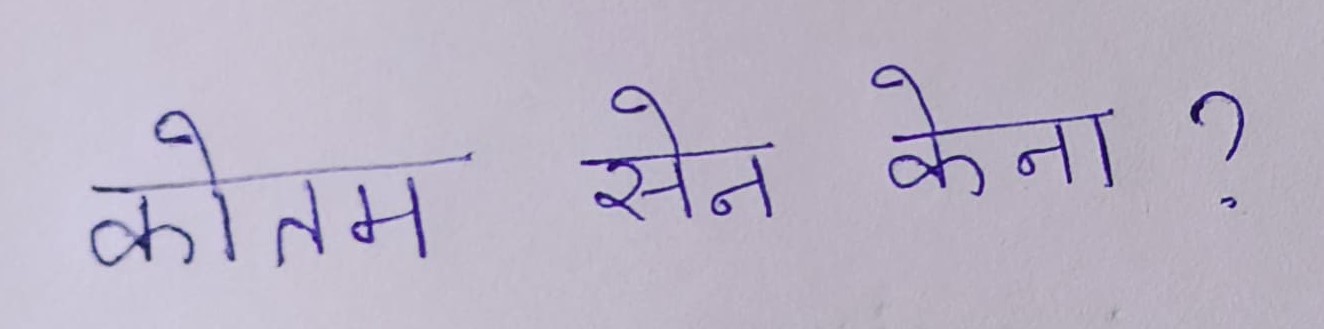 कोतम सेन केना ?